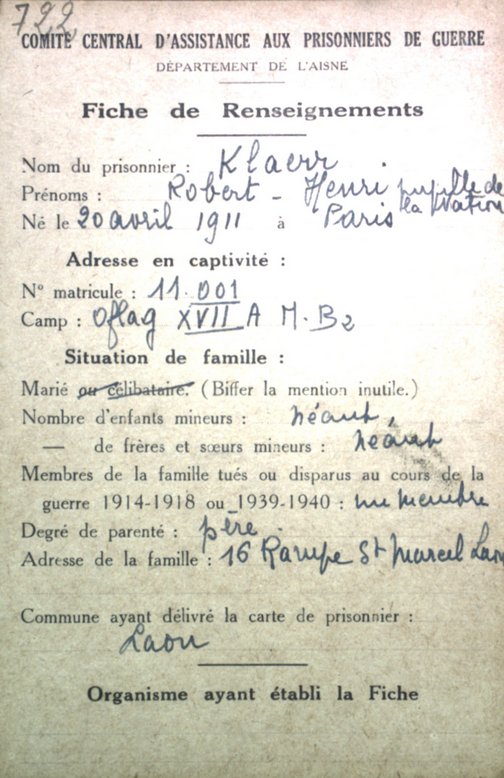 722
COMITÉ CENTRAL D'ASSISTANCE AUX PRISONNIERS DE GUERRE
DÉPARTEMENT DE L'AISNE
Fiche de Renseignements
Nom du prisonnier : Klaerr
Prénoms : Robert - Henri pupille de la Nation
Né le 20 avril 1911 à Paris
Adresse en captivité :
N° matricule : 11.001
Camp : Oflag XVII A M.B2
Situation de famille :
Marié ou célibataire. (Biffer la mention inutile.)
Nombre d'enfants mineurs : néant
— de frères et sœurs mineurs : néant
Membres de la famille tués ou disparus au cours de la
guerre 1914-1918 ou 1939-1940 : un membre
Degré de parenté : père
Adresse de la famille : 16 Rampe St Marcel Laon
Commune ayant délivré la carte de prisonnier :
Laon
Organisme ayant établi la Fiche